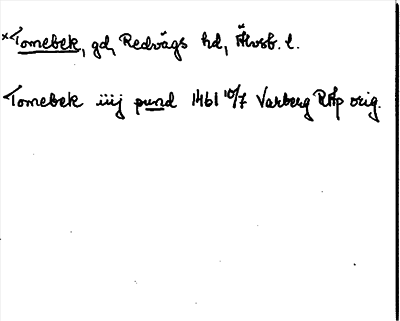 ×Tomebek, gd, Redvägs hd, Älvsb. l.
Tomebek iiij pund 1461 10/7 Varberg RAp orig.